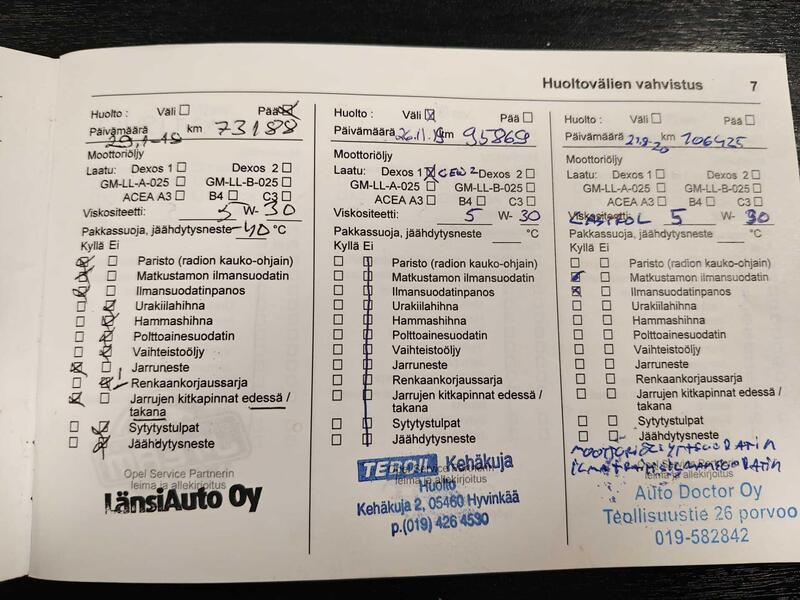 Huoltovälien vahvistus 7
Huolto : Väli Pää
Päivämäärä 29.1-19 km 73188
Moottoriöljy
Laatu: Dexos 1 Dexos 2
GM-LL-A-025 GM-LL-B-025
ACEA A3 B4 C3
Viskositeetti: 5 W- 30
Pakkassuoja, jäähdytysneste -40 °C
Kyllä Ei
Paristo (radion kauko-ohjain)
Matkustamon ilmansuodatin
Ilmansuodatinpanos
Urakiilahihna
Hammashihna
Polttoainesuodatin
Vaihteistoöljy
Jarruneste
Renkaankorjaussarja
Jarrujen kitkapinnat edessä /
takana
Sytytystulpat
Jäähdytysneste
Opel Service Partnerin
leima ja allekirjoitus
LänsiAuto Oy
Huolto : Väli Pää
Päivämäärä 26.11.19 km 95869
Moottoriöljy
Laatu: Dexos 1 GEN 2 Dexos 2
GM-LL-A-025 GM-LL-B-025
ACEA A3 B4 C3
Viskositeetti: 5 W- 30
Pakkassuoja, jäähdytysneste °C
Kyllä Ei
Paristo (radion kauko-ohjain)
Matkustamon ilmansuodatin
Ilmansuodatinpanos
Urakiilahihna
Hammashihna
Polttoainesuodatin
Vaihteistoöljy
Jarruneste
Renkaankorjaussarja
Jarrujen kitkapinnat edessä /
takana
Sytytystulpat
Jäähdytysneste
Opel Service Partnerin
leima ja allekirjoitus
TEBOIL Kehäkuja
Huolto
Kehäkuja 2, 05460 Hyvinkää
p.(019) 426 4530
Huolto : Väli Pää
Päivämäärä 21.8-20 km 106425
Moottoriöljy
Laatu: Dexos 1 Dexos 2
GM-LL-A-025 GM-LL-B-025
ACEA A3 B4 C3
Viskositeetti: CASTROL 5 W- 30
Pakkassuoja, jäähdytysneste °C
Kyllä Ei
Paristo (radion kauko-ohjain)
Matkustamon ilmansuodatin
Ilmansuodatinpanos
Urakiilahihna
Hammashihna
Polttoainesuodatin
Vaihteistoöljy
Jarruneste
Renkaankorjaussarja
Jarrujen kitkapinnat edessä /
takana
Sytytystulpat
Jäähdytysneste
MOOTTORIÖLJYNSUODATIN
leima ja allekirjoitus
Auto Doctor Oy
Teollisuustie 26 porvoo
019-582842